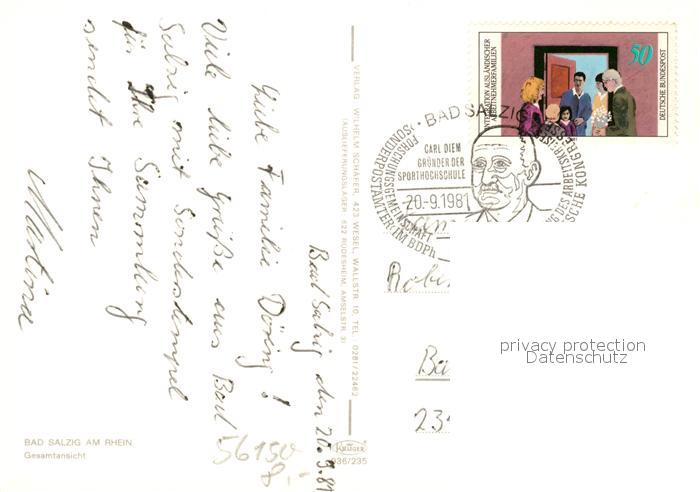 Bad Salzig den 20.9.81
Liebe Familie Döring!
Viele liebe Grüße aus Bad
Salzig mit Sonderstempel
für Ihre Sammlung
sendet Ihnen
Martina
BAD SALZIG AM RHEIN
Gesamtansicht
56150
8,-
VERLAG WILHELM SCHÄFER, 423 WESEL, WALLSTR. 10, TEL. 0281/22462
(AUSLIEFERUNGSLAGER: 622 RÜDESHEIM, AMSELSTR. 3)
KRÜGER
936/235
INTEGRATION AUSLÄNDISCHER
ARBEITNEHMERFAMILIEN
50
DEUTSCHE BUNDESPOST
BAD SALZIG
CARL DIEM
GRÜNDER DER
SPORTHOCHSCHULE
20.-9.1981
FORSCHUNGSGEMEINSCHAFT
SONDERPOSTÄMTER IM BDPh
privacy protection
Datenschutz